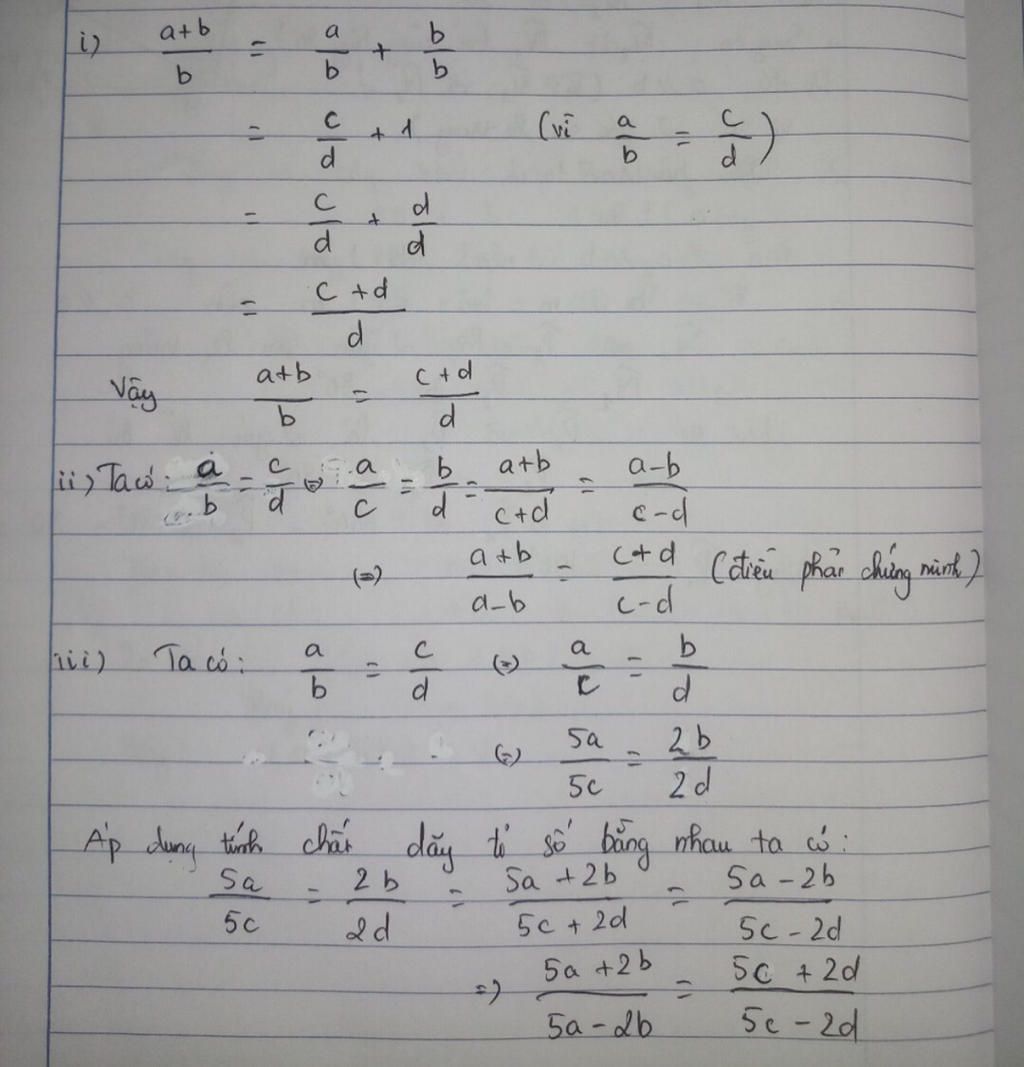 i) a+b/b = a/b + b/b
= c/d + 1 (vì a/b = c/d)
= c/d + d/d
= c+d/d
Vậy a+b/b = c+d/d
ii) Ta có: a/b = c/d => a/c = b/d = a+b/c+d = a-b/c-d
(=) a+b/a-b = c+d/c-d (điều phải chứng minh)
iii) Ta có: a/b = c/d (=) a/c = b/d
(=) 5a/5c = 2b/2d
Áp dụng tính chất dãy tỉ số bằng nhau ta có:
5a/5c = 2b/2d = 5a+2b/5c+2d = 5a-2b/5c-2d
=> 5a+2b/5a-2b = 5c+2d/5c-2d